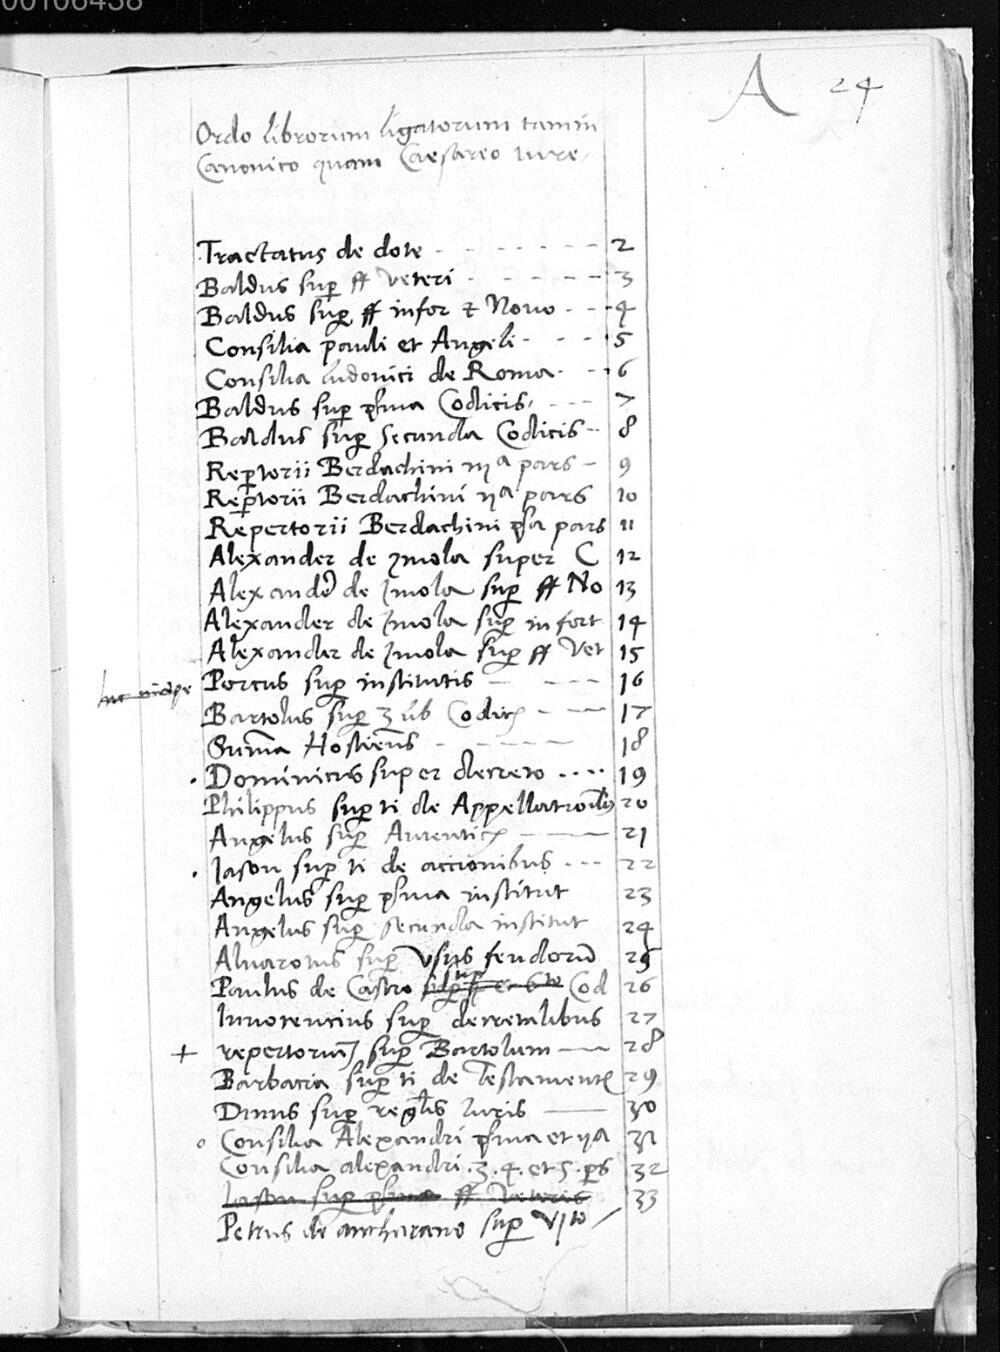 00106438
A 24
Ordo librorum ligatorum tamin
Canonico quam Caesareo iure
Tractatus de dote 2
Baldus sup ff veteri 3
Baldus sup ff infor & Novo 4
Consilia pauli et Angeli 5
Consilia ludovici de Roma 6
Baldus sup pīma Codicis 7
Baldus sup secunda Codicis 8
Reptorii Berdachini iijª pars 9
Reptorii Berdachini ijª pars 10
Repertorii Berdachini pª pars 11
Alexander de ymola super C 12
Alexander de Imola sup ff No 13
Alexander de Imola sup infort 14
Alexander de Imola sup ff Vet 15
Porcus sup institutis 16
Bartolus sup 3 lib Codic 17
Suma Hostiens 18
Dominicus super decreto 19
Philippus sup ti de Appellationib 20
Angelus sup Autentic 21
Iason sup ti de accionibus 22
Angelus sup pīma institut 23
Angelus sup secunda institut 24
Alvarotus sup usus feudorum 25
Paulus de Castro sup Cod 26
Innocencius sup decretalibus 27
+ repertorium sup Bartolum 28
Barbacia sup ti de Testament 29
Dinus sup reglis iuris 30
Consilia Alexandri pīma et ijª 31
Consilia alexandri .3.4. et 5. ps 32
Iason sup pīma ff Veteris 33
Petrus de ancharano sup VIto